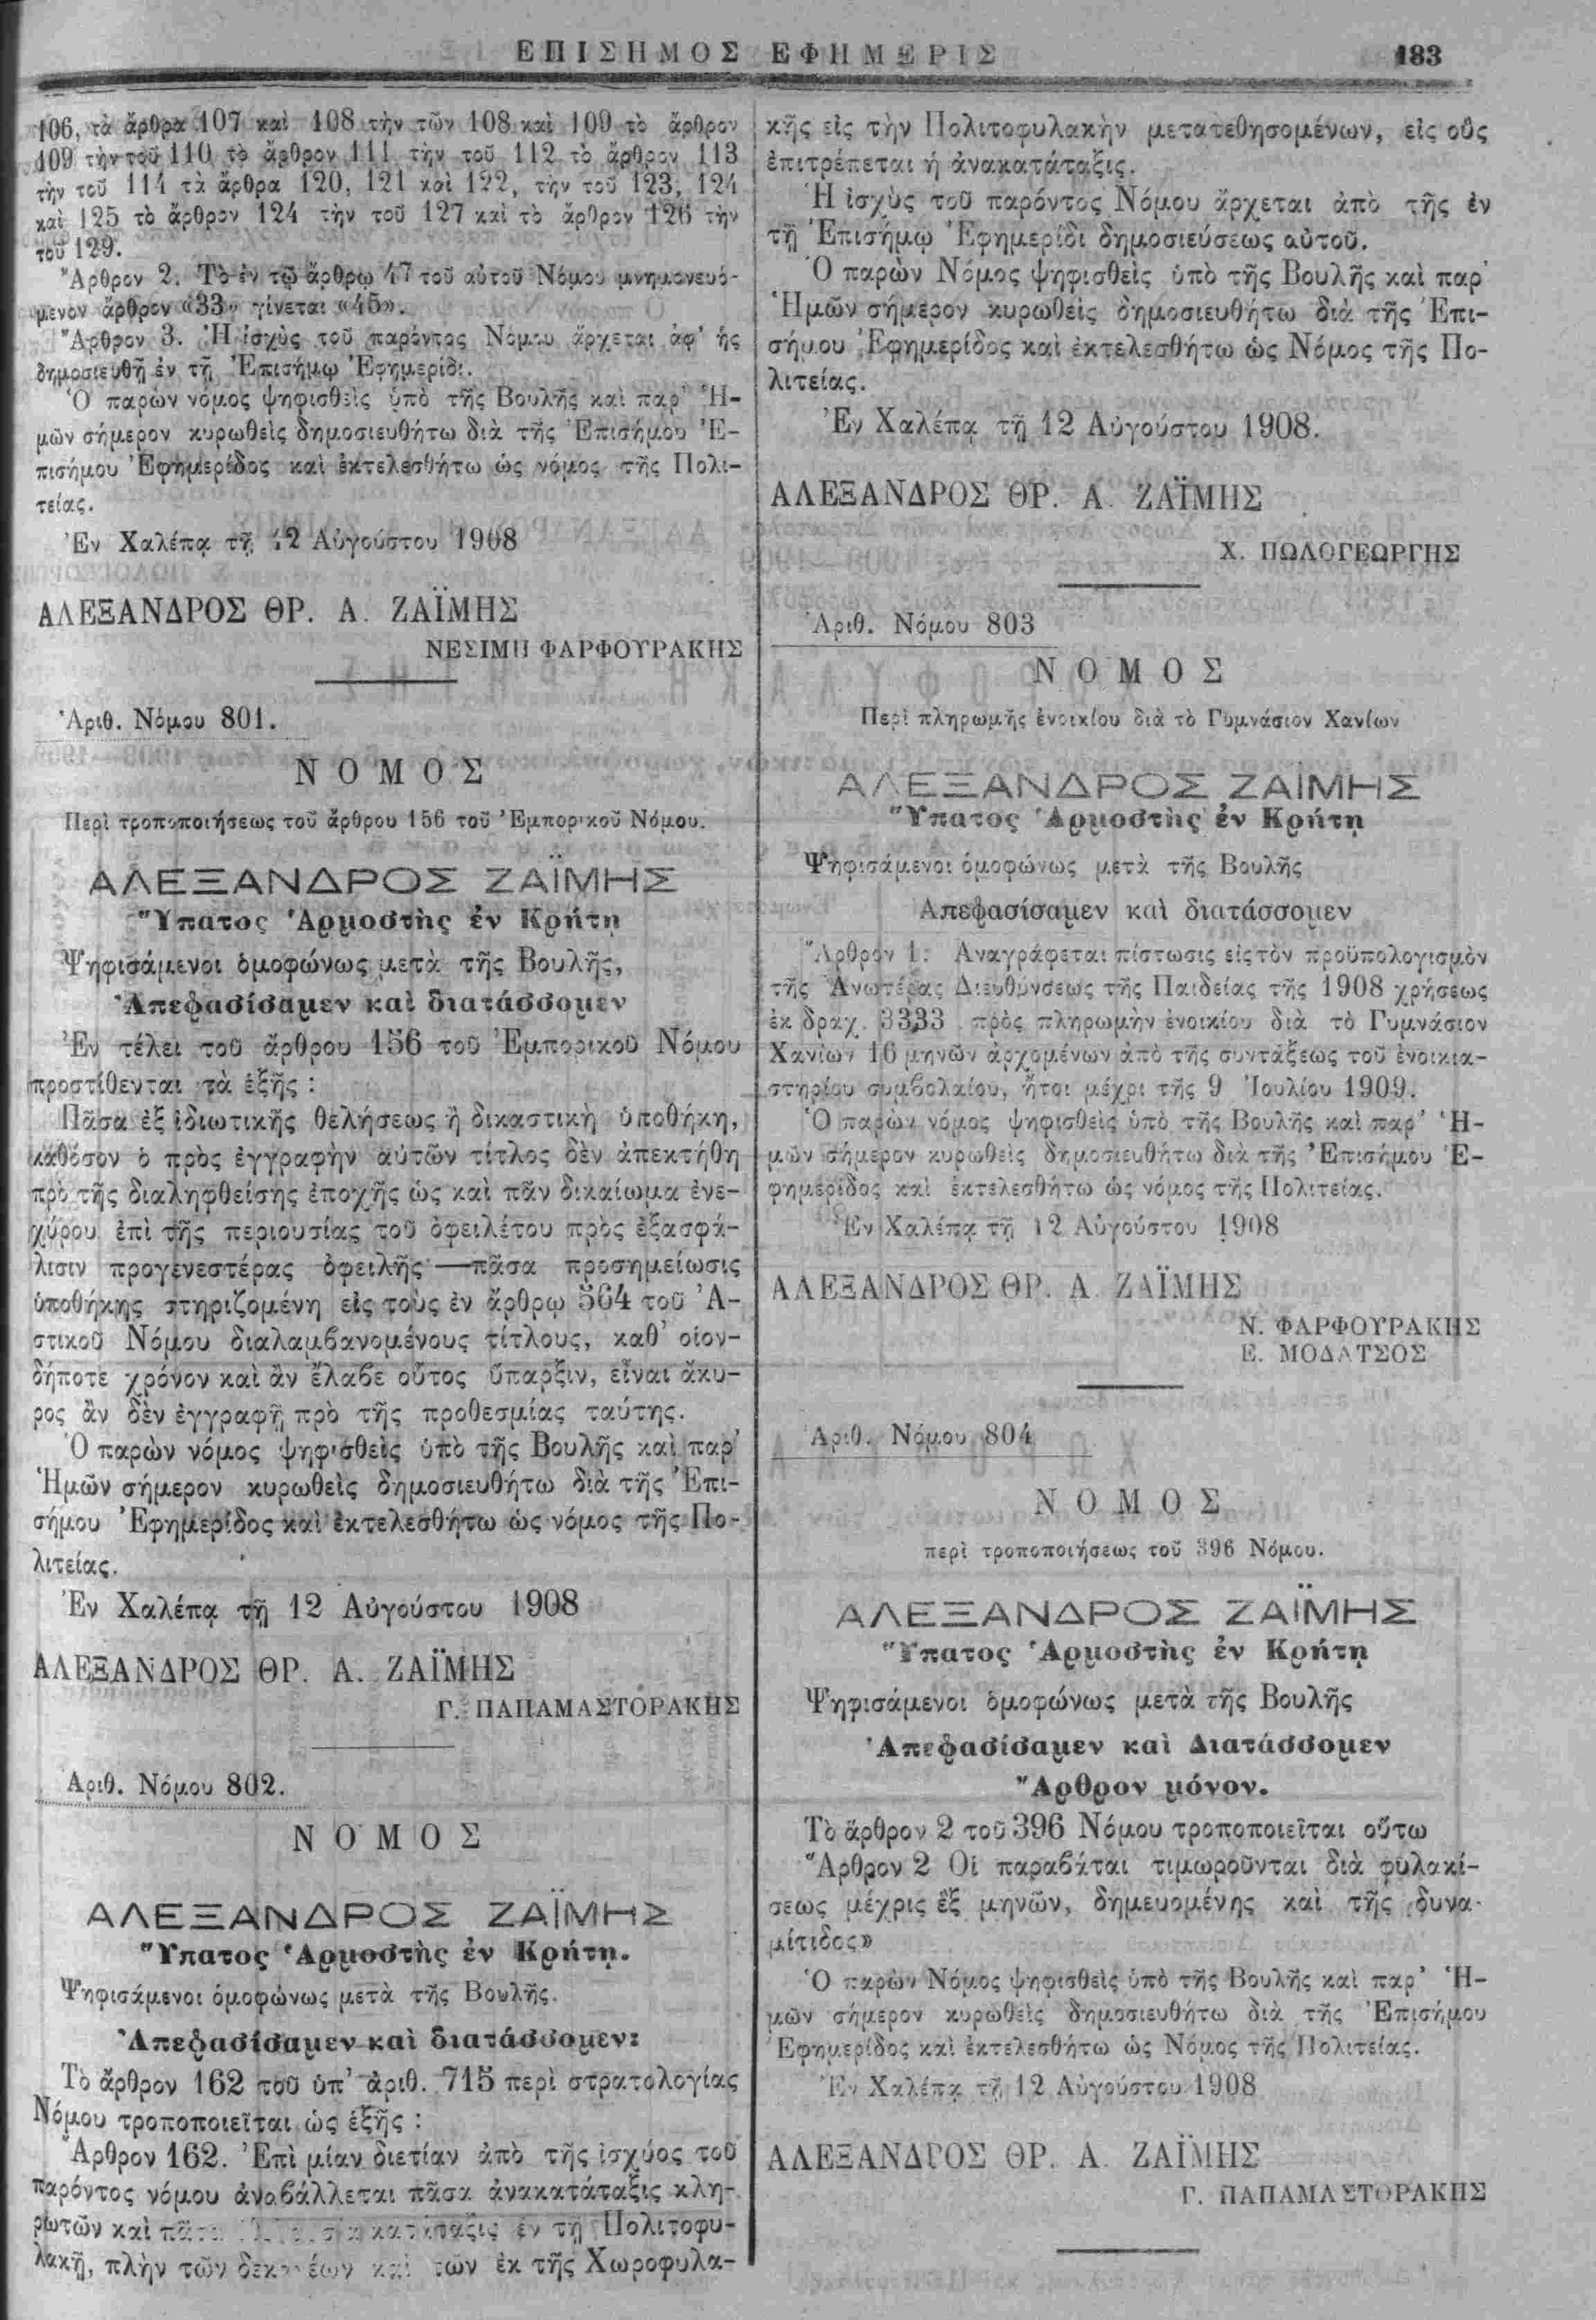 ΕΠΙΣΗΜΟΣ ΕΦΗΜΕΡΙΣ 183
106, τὰ ἄρθρα 107 καὶ 108 τὴν τῶν 108 καὶ 109 τὸ ἄρθρον
109 τὴν τοῦ 110 τὸ ἄρθρον 111 τὴν τοῦ 112 τὸ ἄρθρον 113
τὴν τοῦ 114 τὰ ἄρθρα 120, 121 καὶ 122, τὴν τοῦ 123, 124
καὶ 125 τὸ ἄρθρον 124 τὴν τοῦ 127 καὶ τὸ ἄρθρον 126 τὴν
τοῦ 129.
Ἄρθρον 2. Τὸ ἐν τῷ ἄρθρῳ 47 τοῦ αὐτοῦ Νόμου μνημονευό-
μενον ἄρθρον «33» γίνεται «45».
Ἄρθρον 3. Ἡ ἰσχὺς τοῦ παρόντος Νόμου ἄρχεται ἀφ' ἧς
δημοσιευθῇ ἐν τῇ Ἐπισήμῳ Ἐφημερίδι.
Ὁ παρὼν νόμος ψηφισθεὶς ὑπὸ τῆς Βουλῆς καὶ παρ' Ἡ-
μῶν σήμερον κυρωθεὶς δημοσιευθήτω διὰ τῆς Ἐπισήμου Ἐ-
πισήμου Ἐφημερίδος καὶ ἐκτελεσθήτω ὡς νόμος τῆς Πολι-
τείας.
Ἐν Χαλέπᾳ τῇ 12 Αὐγούστου 1908
ΑΛΕΞΑΝΔΡΟΣ ΘΡ. Α. ΖΑΪΜΗΣ
ΝΕΣΙΜΗ ΦΑΡΦΟΥΡΑΚΗΣ
Ἀριθ. Νόμου 801.
ΝΟΜΟΣ
Περὶ τροποποιήσεως τοῦ ἄρθρου 156 τοῦ Ἐμπορικοῦ Νόμου.
ΑΛΕΞΑΝΔΡΟΣ ΖΑΪΜΗΣ
Ὕπατος Ἁρμοστὴς ἐν Κρήτῃ
Ψηφισάμενοι ὁμοφώνως μετὰ τῆς Βουλῆς,
Ἀπεφασίσαμεν καὶ διατάσσομεν
Ἐν τέλει τοῦ ἄρθρου 156 τοῦ Ἐμπορικοῦ Νόμου
προστίθενται τὰ ἑξῆς :
Πᾶσα ἐξ ἰδιωτικῆς θελήσεως ἢ δικαστικὴ ὑποθήκη,
καθόσον ὁ πρὸς ἐγγραφὴν αὐτῶν τίτλος δὲν ἀπεκτήθη
πρὸ τῆς διαληφθείσης ἐποχῆς ὡς καὶ πᾶν δικαίωμα ἐνε-
χύρου ἐπὶ τῆς περιουσίας τοῦ ὀφειλέτου πρὸς ἐξασφά-
λισιν προγενεστέρας ὀφειλῆς —πᾶσα προσημείωσις
ὑποθήκης στηριζομένη εἰς τοὺς ἐν ἄρθρῳ 564 τοῦ Ἀ-
στικοῦ Νόμου διαλαμβανομένους τίτλους, καθ' οἱον-
δήποτε χρόνον καὶ ἂν ἔλαβε οὗτος ὕπαρξιν, εἶναι ἄκυ-
ρος ἂν δὲν ἐγγραφῇ πρὸ τῆς προθεσμίας ταύτης.
Ὁ παρὼν νόμος ψηφισθεὶς ὑπὸ τῆς Βουλῆς καὶ παρ'
Ἡμῶν σήμερον κυρωθεὶς δημοσιευθήτω διὰ τῆς Ἐπι-
σήμου Ἐφημερίδος καὶ ἐκτελεσθήτω ὡς νόμος τῆς Πο-
λιτείας.
Ἐν Χαλέπᾳ τῇ 12 Αὐγούστου 1908
ΑΛΕΞΑΝΔΡΟΣ ΘΡ. Α. ΖΑΪΜΗΣ
Γ. ΠΑΠΑΜΑΣΤΟΡΑΚΗΣ
Ἀριθ. Νόμου 802.
ΝΟΜΟΣ
ΑΛΕΞΑΝΔΡΟΣ ΖΑΪΜΗΣ
Ὕπατος Ἁρμοστὴς ἐν Κρήτῃ.
Ψηφισάμενοι ὁμοφώνως μετὰ τῆς Βουλῆς.
Ἀπεφασίσαμεν καὶ διατάσσομεν:
Τὸ ἄρθρον 162 τοῦ ὑπ' ἀριθ. 715 περὶ στρατολογίας
Νόμου τροποποιεῖται ὡς ἑξῆς :
Ἄρθρον 162. Ἐπὶ μίαν διετίαν ἀπὸ τῆς ἰσχύος τοῦ
παρόντος νόμου ἀναβάλλεται πᾶσα ἀνακατάταξις κλη-
ρωτῶν καὶ πᾶσα ἐν τῇ Πολιτοφυ-
λακῇ, πλὴν τῶν δεκανέων καὶ τῶν ἐκ τῆς Χωροφυλα-
κῆς εἰς τὴν Πολιτοφυλακὴν μετατεθησομένων, εἰς οὓς
ἐπιτρέπεται ἡ ἀνακατάταξις.
Ἡ ἰσχὺς τοῦ παρόντος Νόμου ἄρχεται ἀπὸ τῆς ἐν
τῇ Ἐπισήμῳ Ἐφημερίδι δημοσιεύσεως αὐτοῦ.
Ὁ παρὼν Νόμος ψηφισθεὶς ὑπὸ τῆς Βουλῆς καὶ παρ'
Ἡμῶν σήμερον κυρωθεὶς δημοσιευθήτω διὰ τῆς Ἐπι-
σήμου Ἐφημερίδος καὶ ἐκτελεσθήτω ὡς Νόμος τῆς Πο-
λιτείας.
Ἐν Χαλέπᾳ τῇ 12 Αὐγούστου 1908.
ΑΛΕΞΑΝΔΡΟΣ ΘΡ. Α. ΖΑΪΜΗΣ
Χ. ΠΩΛΟΓΕΩΡΓΗΣ
Ἀριθ. Νόμου 803
ΝΟΜΟΣ
Περὶ πληρωμῆς ἐνοικίου διὰ τὸ Γυμνάσιον Χανίων
ΑΛΕΞΑΝΔΡΟΣ ΖΑΪΜΗΣ
Ὕπατος Ἁρμοστὴς ἐν Κρήτῃ
Ψηφισάμενοι ὁμοφώνως μετὰ τῆς Βουλῆς
Ἀπεφασίσαμεν καὶ διατάσσομεν
Ἄρθρον 1: Ἀναγράφεται πίστωσις εἰς τὸν προϋπολογισμὸν
τῆς Ἀνωτέρας Διευθύνσεως τῆς Παιδείας τῆς 1908 χρήσεως
ἐκ δραχ. 3333 πρὸς πληρωμὴν ἐνοικίου διὰ τὸ Γυμνάσιον
Χανίων 16 μηνῶν ἀρχομένων ἀπὸ τῆς συντάξεως τοῦ ἐνοικια-
στηρίου συμβολαίου, ἤτοι μέχρι τῆς 9 Ἰουλίου 1909.
Ὁ παρὼν νόμος ψηφισθεὶς ὑπὸ τῆς Βουλῆς καὶ παρ' Ἡ-
μῶν σήμερον κυρωθεὶς δημοσιευθήτω διὰ τῆς Ἐπισήμου Ἐ-
φημερίδος καὶ ἐκτελεσθήτω ὡς νόμος τῆς Πολιτείας.
Ἐν Χαλέπᾳ τῇ 12 Αὐγούστου 1908
ΑΛΕΞΑΝΔΡΟΣ ΘΡ. Α ΖΑΪΜΗΣ
Ν. ΦΑΡΦΟΥΡΑΚΗΣ
Ε. ΜΟΔΑΤΣΟΣ
Ἀριθ. Νόμου 804
ΝΟΜΟΣ
περὶ τροποποιήσεως τοῦ 396 Νόμου.
ΑΛΕΞΑΝΔΡΟΣ ΖΑΪΜΗΣ
Ὕπατος Ἁρμοστὴς ἐν Κρήτῃ
Ψηφισάμενοι ὁμοφώνως μετὰ τῆς Βουλῆς
Ἀπεφασίσαμεν καὶ Διατάσσομεν
Ἄρθρον μόνον.
Τὸ ἄρθρον 2 τοῦ 396 Νόμου τροποποιεῖται οὕτω
"Ἄρθρον 2 Οἱ παραβάται τιμωροῦνται διὰ φυλακί-
σεως μέχρις ἓξ μηνῶν, δημευομένης καὶ τῆς δυνα-
μίτιδος»
Ὁ παρὼν Νόμος ψηφισθεὶς ὑπὸ τῆς Βουλῆς καὶ παρ' Ἡ-
μῶν σήμερον κυρωθεὶς δημοσιευθήτω διὰ τῆς Ἐπισήμου
Ἐφημερίδος καὶ ἐκτελεσθήτω ὡς Νόμος τῆς Πολιτείας.
Ἐν Χαλέπᾳ τῇ 12 Αὐγούστου 1908
ΑΛΕΞΑΝΔΡΟΣ ΘΡ. Α. ΖΑΪΜΗΣ
Γ. ΠΑΠΑΜΑΣΤΟΡΑΚΗΣ